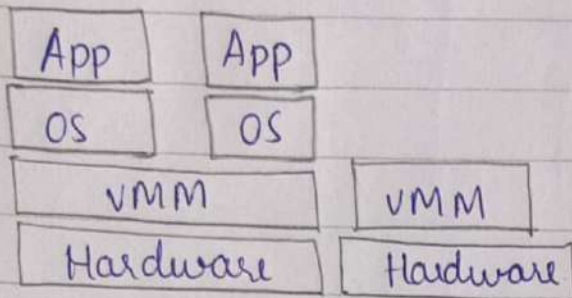 App App
OS OS
VMM VMM
Hardware Hardware